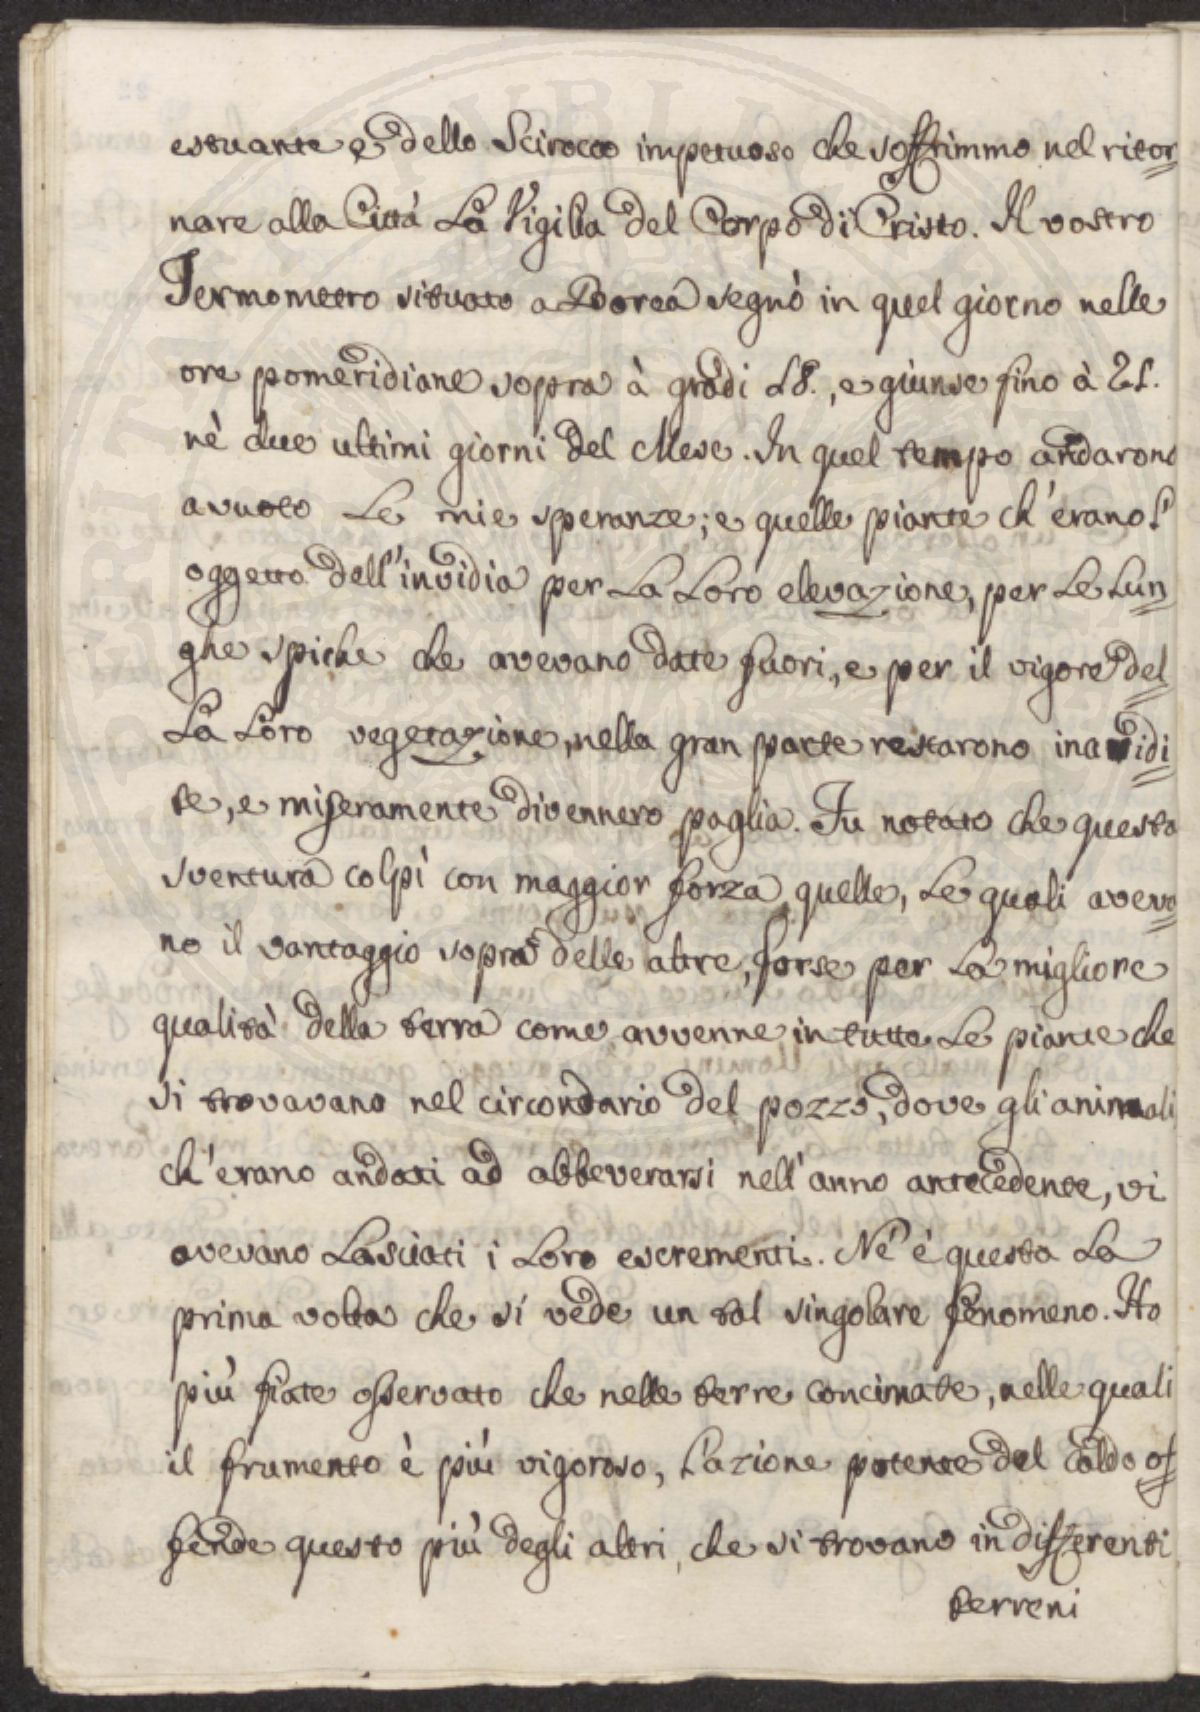 estuante e dello Scirocco impetuoso che soffrimmo nel ritor=
nare alla Città La Vigilia del Corpo di Cristo. Il vostro
Termometro situato a Borea segnò in quel giorno nelle
ore pomeridiane sopra à gradi 18., e giunse fino à 21.
nè due ultimi giorni del Mese. In quel tempo andarono
avuoto Le mie speranze; e quelle piante ch'erano l'
oggetto dell'invidia per La Loro elevazione, per Le Lun=
ghe spiche che avevano date fuori, e per il vigore del=
La Loro vegetazione, nella gran parte restarono inaridi=
te, e miseramente divennero paglia. Fu notato che questa
sventura colpì con maggior forza quelle, Le quali aveva=
no il vantaggio sopra delle altre, forse per La migliore
qualità della terra come avvenne in tutte Le piante che
si trovavano nel circondario del pozzo, dove gli animali
ch'erano andati ad abbeverarsi nell'anno antecedente, vi
avevano Lasciati i Loro escrementi. Nè è questa La
prima volta che si vede un tal singolare fenomeno. Ho
più fiate osservato che nelle terre concimate, nelle quali
il frumento è più vigoroso, l'azione potente del caldo of=
fende questo più degli altri, che si trovano in differenti
terreni